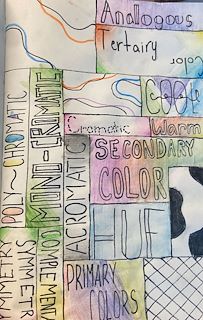 Analogous
Tertairy
Color
Cool
Cromatic
Warm
POLY~CHROMATIC
MONO-CROMATIC
ACROMATIC
SECONDARY
COLOR
HUE
SYMMETRY
COMPLEMENTA
PRIMARY
COLORS